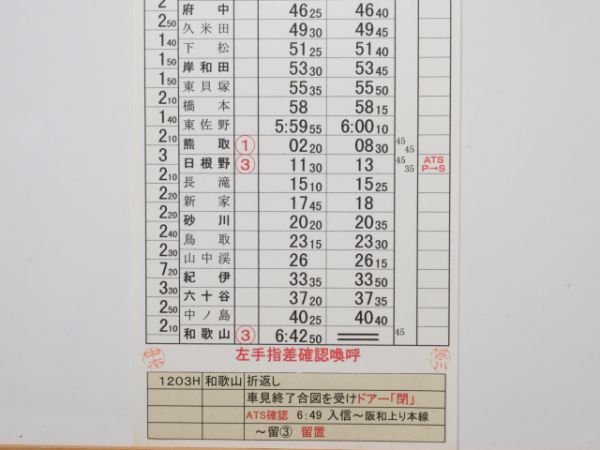 2
府中 46 25 46 40
2 50
久米田 49 30 49 45
1 50
下松 51 25 51 40
1 50
岸和田 53 30 53 45
1 50
東貝塚 55 35 55 50
2 10
橋本 58 58 15
1 40
東佐野 5:59 55 6:00 10
2 10
熊取 ① 02 20 08 30 45 45
3
日根野 ③ 11 30 13 45 35 ATS P→S
2 10
長滝 15 10 15 25
2 20
新家 17 45 18
2 20
砂川 20 20 20 35
2 40
鳥取 23 15 23 30
2 30
山中渓 26 26 15
7 20
紀伊 33 35 33 50
3 30
六十谷 37 20 37 35
2 50
中ノ島 40 25 40 40
2 10
和歌山 ③ 6:42 50 45
左手指差確認喚呼
1203H 和歌山 折返し
車見終了合図を受けドアー「閉」
ATS確認 6:49 入信～阪和上り本線
～留③ 留置